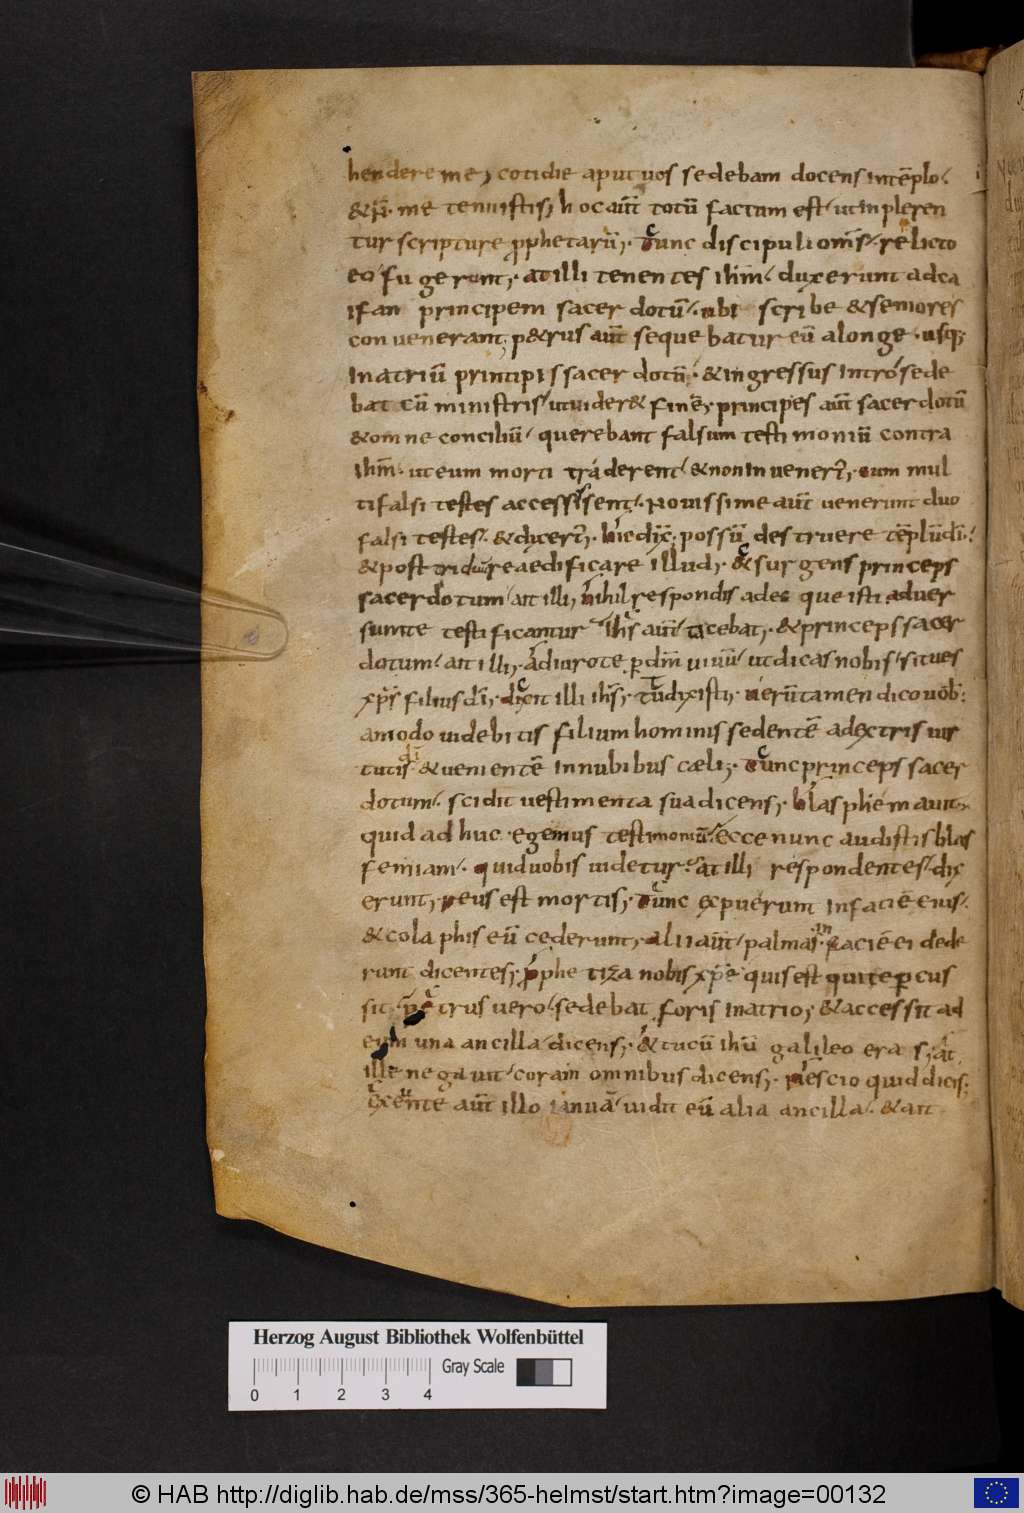 hendere me; cotidie aput uos sedebam docens intẽplo.
& ñ me tenuistis; hoc aũt totũ factum est ut inpleren
tur scripture ꝓphetarũ; Tunc discipuli om̃s relicto
eo fugerunt; at illi tenentes ih̃m duxerunt ad ca
ifan principem sacerdotũ ubi scribe & seniores
conuenerant; p&rus aũt sequebatur eũ alonge usq;
in atriũ principis sacerdotũ & ingressus intro sede
bat cũ ministris ut uider& finẽ; principes aũt sacerdotũ
& omne conciliũ querebant falsum testimoniũ contra
ih̃m ut eum morti traderent & non inuener̃; cum mul
ti falsi testes accessissent. Nouissime aũt uenerunt duo
falsi testes & dixer̃; hic dix̃; possũ destruere tẽplũ di
& post triduũ reaedificare illud; & surgens princeps
sacerdotum ait illi; nihil respondis ad e que isti aduer
sum te testificantur ih̃s aũt tacebat; & princeps sacer
dotum ait illi; Adiuro te ꝑ dm̃ uiuũ ut dicas nobis si tu es
xp̃s filius di; dixit illi ih̃s; tu dixisti; uerũtamen dico uob;
amodo uidebitis filium hominis sedentẽ adextris uir
tutis di & uenientẽ in nubibus cæli; Tunc princeps sacer
dotum scidit uestimenta sua dicens; blasphemauit;
quid adhuc egemus testimoniũ ecce nunc audistis blas
femiam quid uobis uidetur at illi respondentes dix
erunt; reus est mortis; Tunc expuerunt in faciẽ eius.
& colaphis eũ cederunt; alii aũt palmas in faciẽ ei dede
runt dicentes; ꝓphetiza nobis xp̃e quis est qui te ꝑcus
sit; petrus uero sedebat foris in atrio; & accessit ad
eum una ancilla dicens; & tu cũ ih̃u galileo eras; at
ille negauit coram omnibus dicens; nescio quid dicis;
Exeunte aũt illo ianuã uidit eũ alia ancilla & ait
Herzog August Bibliothek Wolfenbüttel
Gray Scale
0 1 2 3 4
© HAB http://diglib.hab.de/mss/365-helmst/start.htm?image=00132